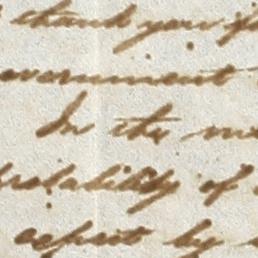 thank you f
overnment
In the m
probability of
by